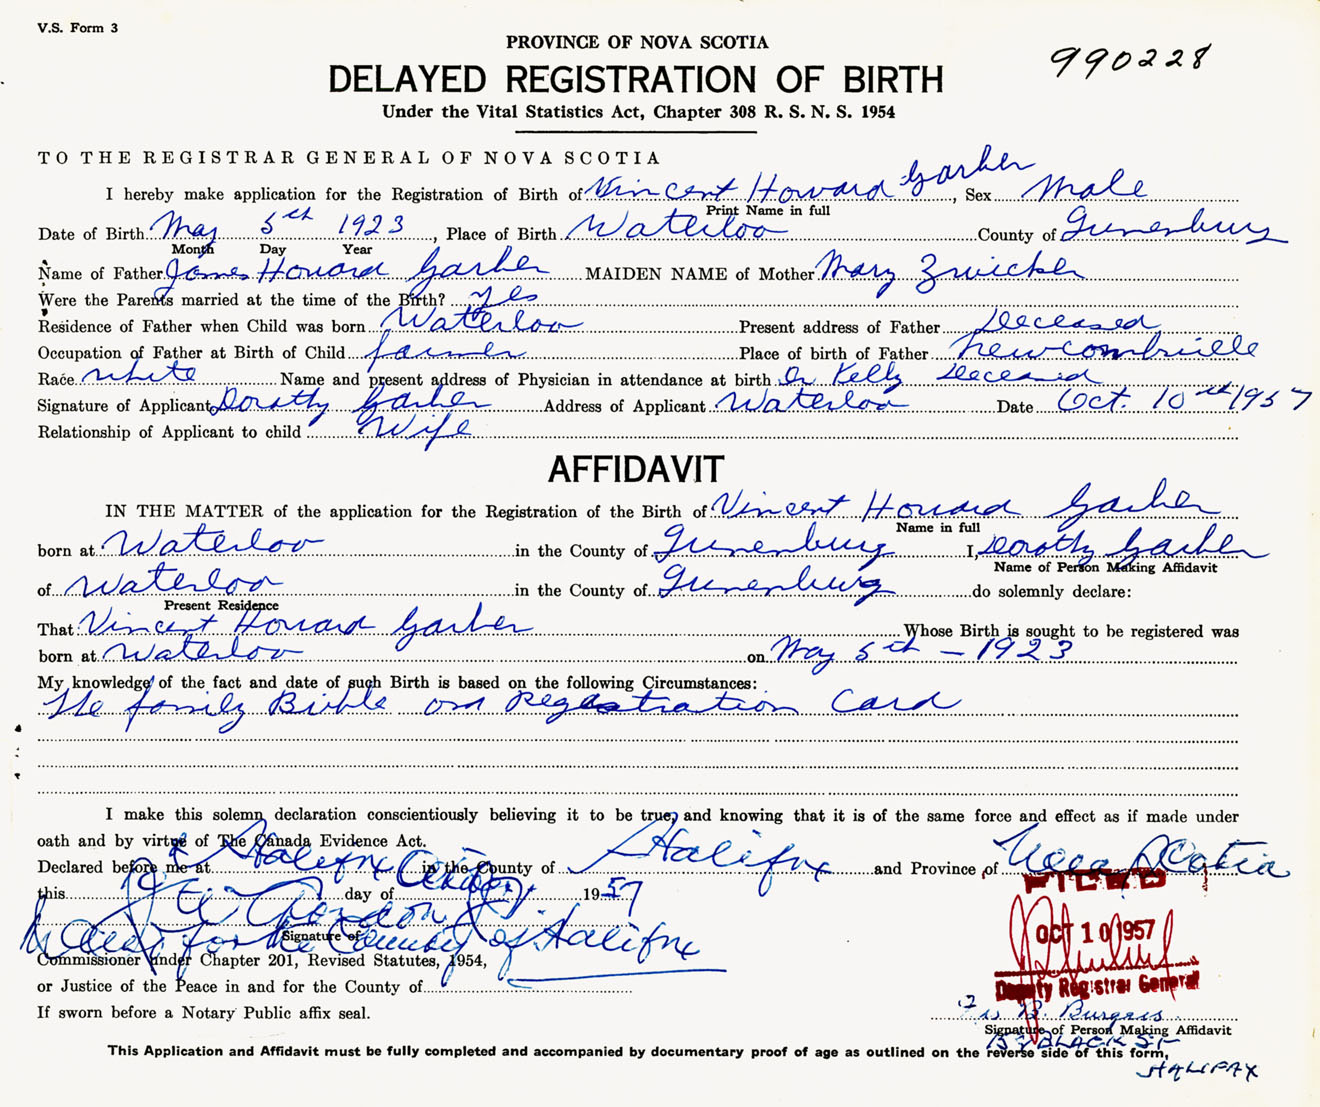 V.S. Form 3
PROVINCE OF NOVA SCOTIA
990228
DELAYED REGISTRATION OF BIRTH
Under the Vital Statistics Act, Chapter 308 R. S. N. S. 1954
TO THE REGISTRAR GENERAL OF NOVA SCOTIA
I hereby make application for the Registration of Birth of Vincent Howard Garber, Sex Male
Print Name in full
Date of Birth May 5th 1923, Place of Birth Waterloo County of Lunenburg
Month Day Year
Name of Father James Howard Garber MAIDEN NAME of Mother Mary Zwicker
Were the Parents married at the time of the Birth? Yes
Residence of Father when Child was born Waterloo Present address of Father Deceased
Occupation of Father at Birth of Child farmer Place of birth of Father Newcombville
Race white Name and present address of Physician in attendance at birth Dr Kelly Deceased
Signature of Applicant Dorothy Garber Address of Applicant Waterloo Date Oct. 10th 1957
Relationship of Applicant to child Wife
AFFIDAVIT
IN THE MATTER of the application for the Registration of the Birth of Vincent Howard Garber
Name in full
born at Waterloo in the County of Lunenburg I, Dorothy Garber
Name of Person Making Affidavit
of Waterloo in the County of Lunenburg do solemnly declare:
Present Residence
That Vincent Howard Garber Whose Birth is sought to be registered was
born at Waterloo on May 5th - 1923
My knowledge of the fact and date of such Birth is based on the following Circumstances:
The family Bible and Registration Card
I make this solemn declaration conscientiously believing it to be true, and knowing that it is of the same force and effect as if made under
oath and by virtue of The Canada Evidence Act.
Declared before me at Halifax in the County of Halifax and Province of Nova Scotia
this day of 1957
FILED
OCT 10 1957
Deputy Registrar General
for the County of Halifax
Signature of
Commissioner under Chapter 201, Revised Statutes, 1954,
or Justice of the Peace in and for the County of
If sworn before a Notary Public affix seal.
B. Burgess
Signature of Person Making Affidavit
BLACK ST
This Application and Affidavit must be fully completed and accompanied by documentary proof of age as outlined on the reverse side of this form,
HALIFAX